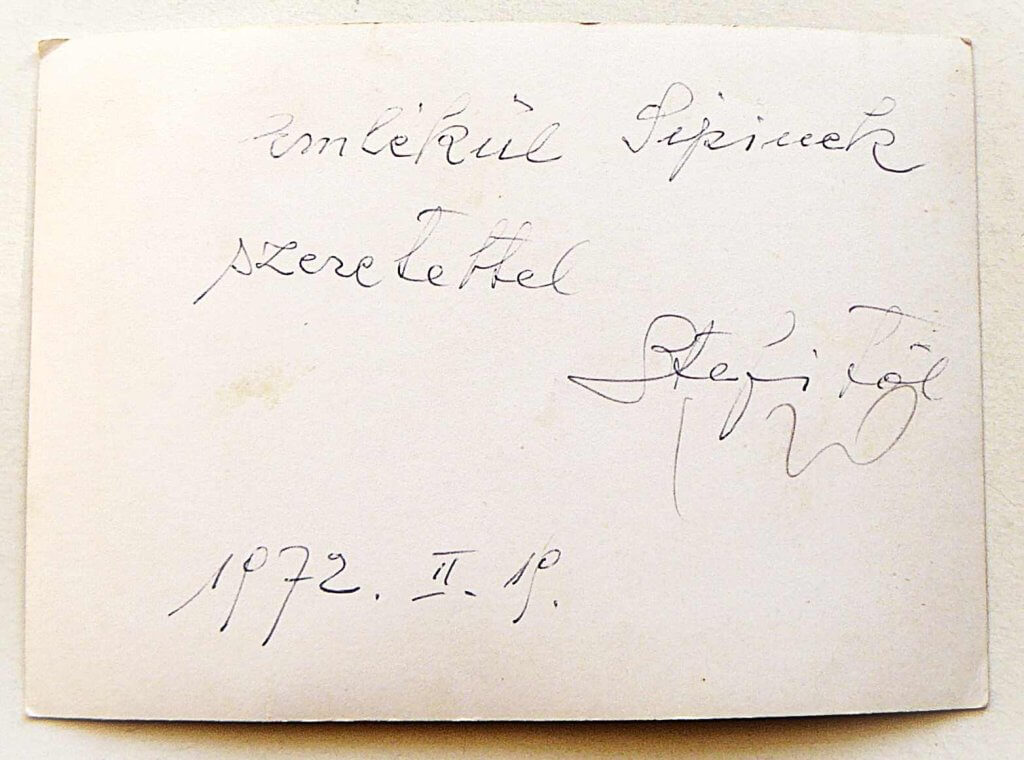 Emlékül Sipinek
szeretettel
Stefitől
1972. II. 19.